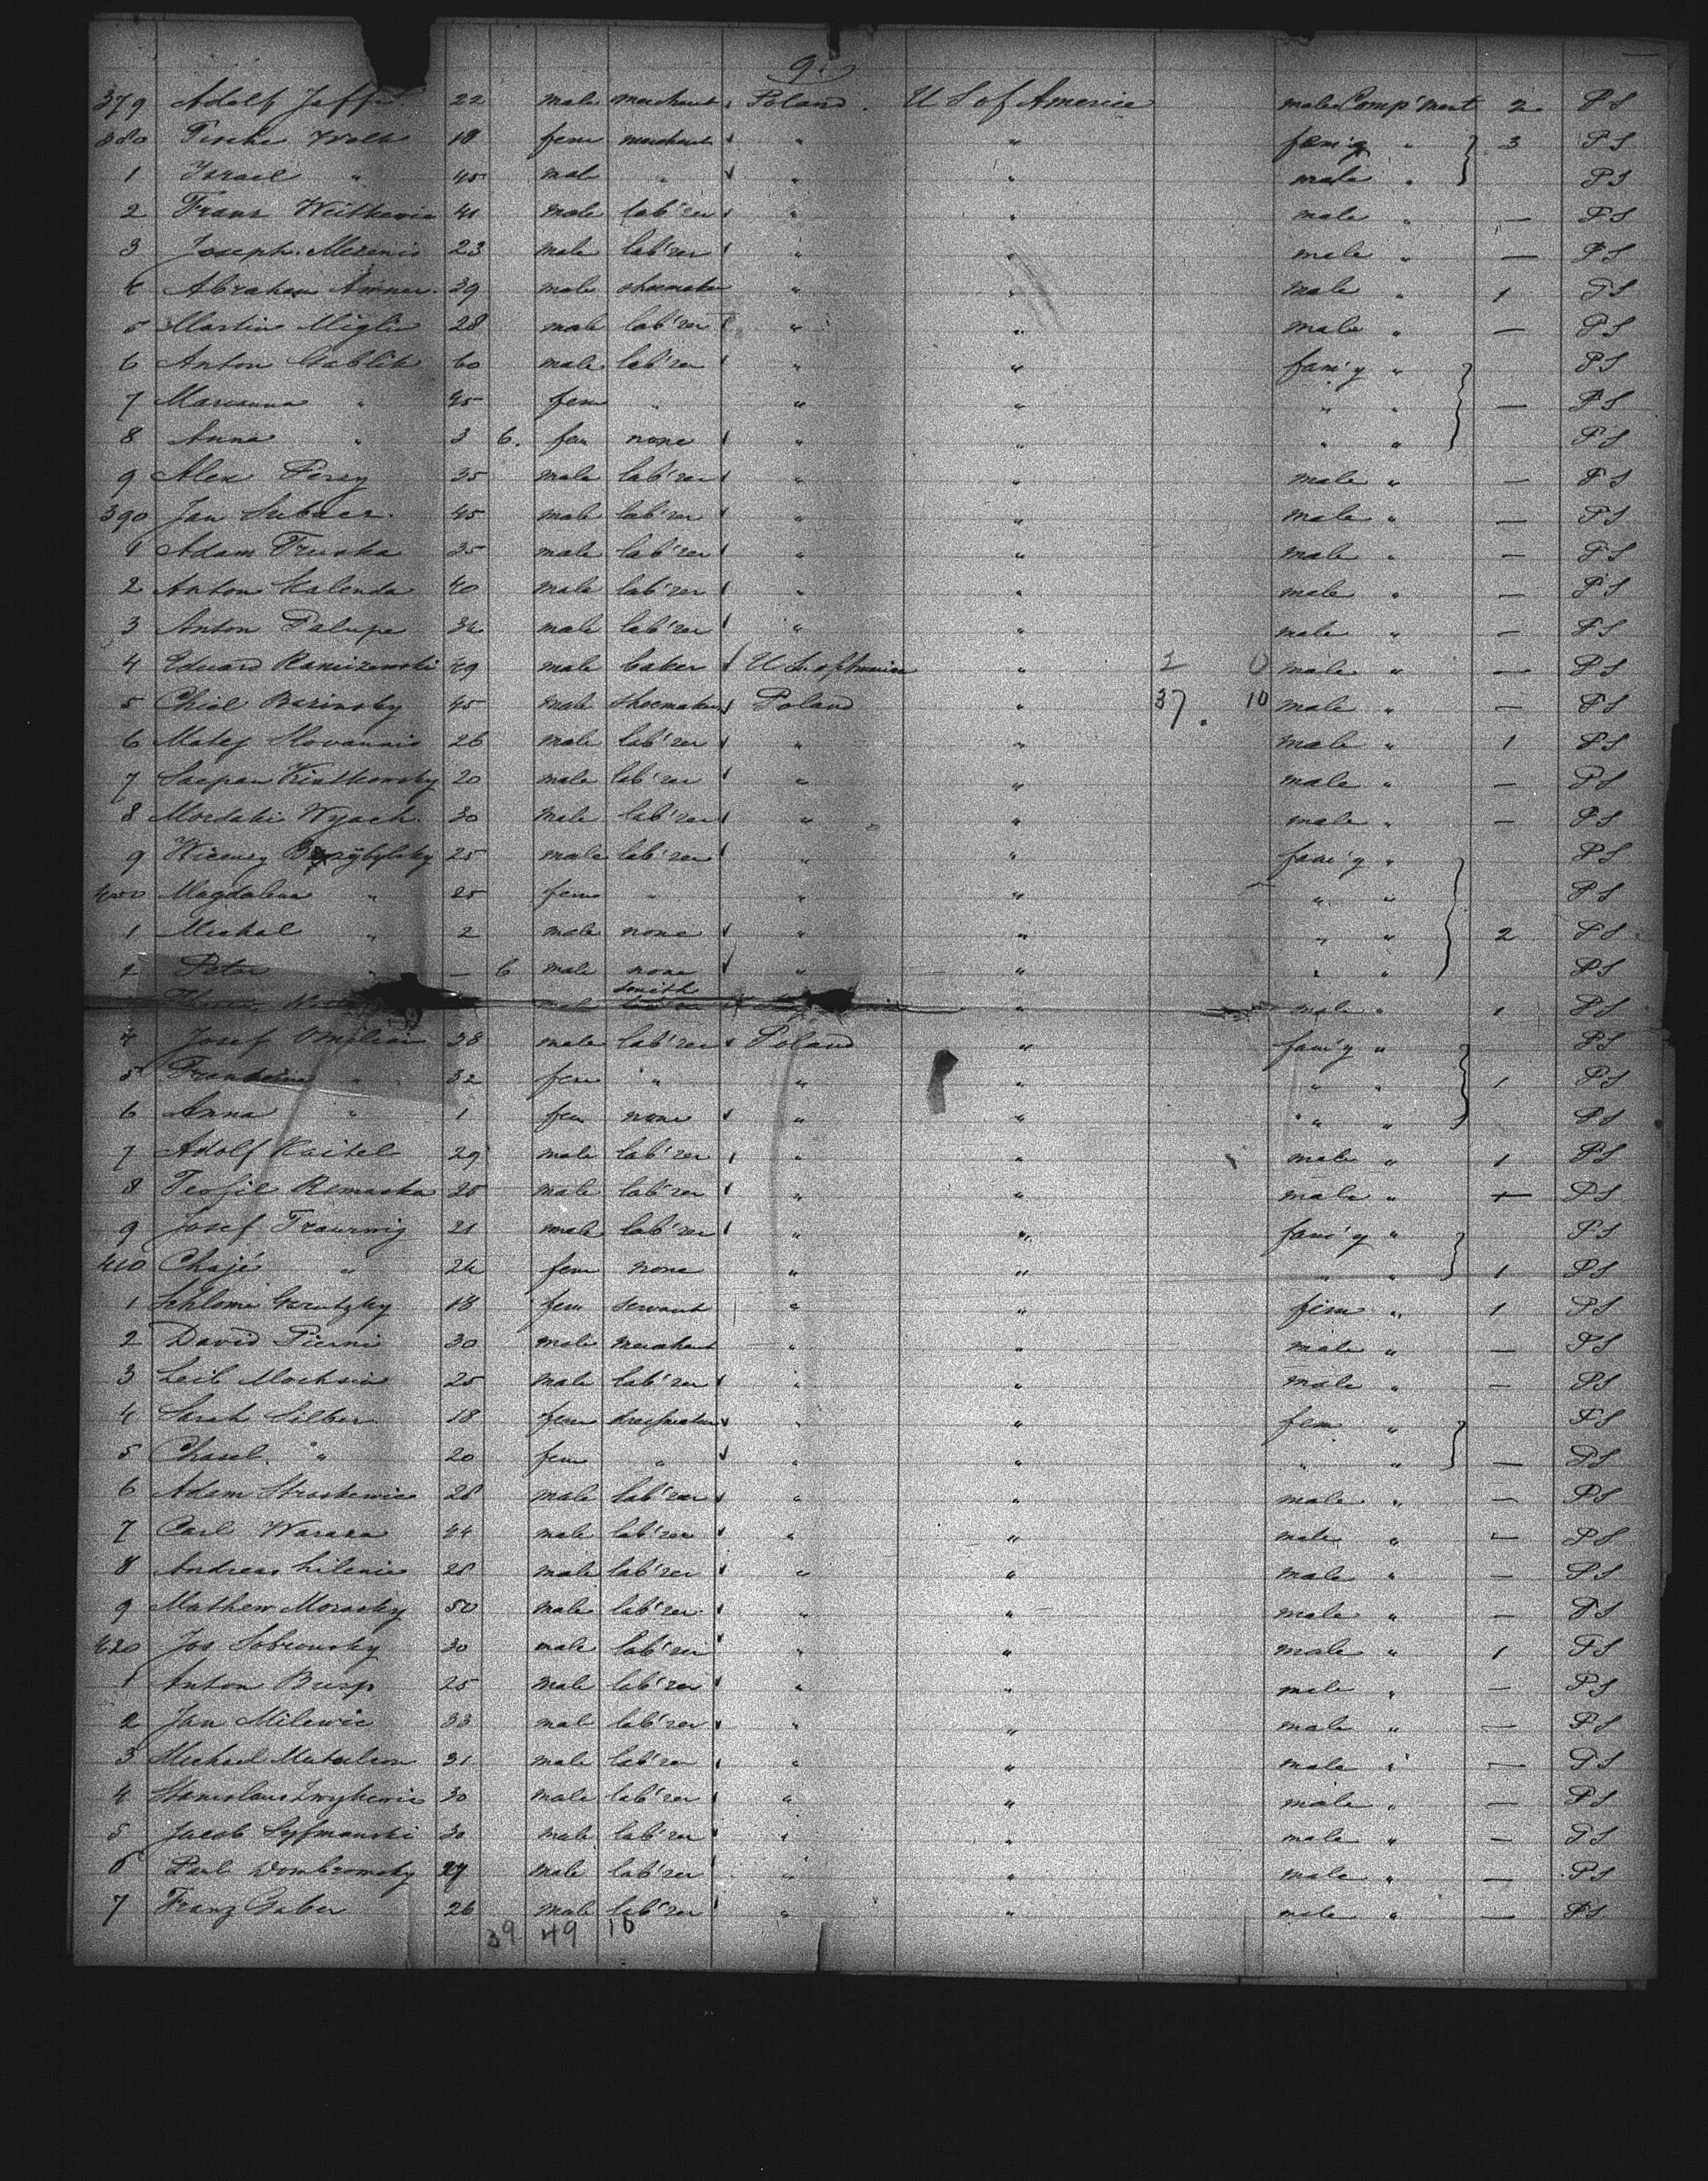 9.
379 Adolf Jaffe 22 male merchant Poland. U S of America male Comp'ment 2 PS
380 Fische Wolb 18 fem merchant " " fam'y " 3 PS
1 Israel " 45 male " " " male " PS
2 Franz Witkewic 41 male lab'rer " " male " — PS
3 Joseph Mezenis 23 male lab'rer " " male " — PS
4 Abraham Amner 39 male shoemaker " " male " 1 PS
5 Martin Miglin 28 male lab'rer " " male " — PS
6 Anton Gablik 60 male lab'rer " " fam'y " PS
7 Marianna " 45 fem " " " " " — PS
8 Anna " 3 6. fem none " " " " PS
9 Alex Persy 35 male lab'rer " " male " — PS
390 Jan 45 male lab'rer " " male " — PS
1 Adam Truska 35 male lab'rer " " male " — PS
2 Anton Kalenda 40 male lab'rer " " male " — PS
3 Anton Palupe 34 male lab'rer " " male " — PS
4 Eduard Ramizewski 49 male baker U S of America " male " — PS
5 Chiel Barinsky 45 male shoemaker Poland " 37. 10 male " — PS
6 Matej 26 male lab'rer " " male " 1 PS
7 Kintkowsky 20 male lab'rer " " male " — PS
8 Mordchi Wyach 30 male lab'rer " " male " — PS
9 25 male lab'rer " " fam'y " PS
400 Magdalena " 25 fem " " " " " PS
1 Michal " 2 male none " " " " 2 PS
2 Peter " — 6 male none " " " " PS
smith " male " 1 PS
4 Josef 38 male lab'rer Poland " fam'y " PS
5 " 32 fem " " " " " 1 PS
6 Anna " 1 fem none " " " " PS
7 Adolf Kaitel 29 male lab'rer " " male " 1 PS
8 Teofil Remaska 25 male lab'rer " " male " — PS
9 Josef Traurnig 21 male lab'rer " " fam'y " PS
410 Chaje " 24 fem none " " " " 1 PS
1 Schlome 18 fem servant " " fem " 1 PS
2 David Pierni 30 male merchant " " male " — PS
3 Leib Mochsin 25 male lab'rer " " male " — PS
4 Sarah Silber 18 fem dressmaker " " fem " PS
5 Chasel " 20 fem " " " " " — PS
6 Adam Straskewic 28 male lab'rer " " male " — PS
7 Carl Warasa 44 male lab'rer " " male " — PS
8 Andreas Lilenis 28 male lab'rer " " male " — PS
9 Mathew Morasky 50 male lab'rer " " male " — PS
420 Jos Sobrousky 30 male lab'rer " " male " 1 PS
1 Anton 25 male lab'rer " " male " — PS
2 Jan Milewic 33 male lab'rer " " male " — PS
3 Michael 31 male lab'rer " " male " — PS
4 Stanislaus 30 male lab'rer " " male " — PS
5 Jacob 30 male lab'rer " " male " — PS
6 Paul Dombromsky 27 male lab'rer " " male " — PS
7 Franz Gaber 26 male lab'rer " " male " — PS
39 49 10